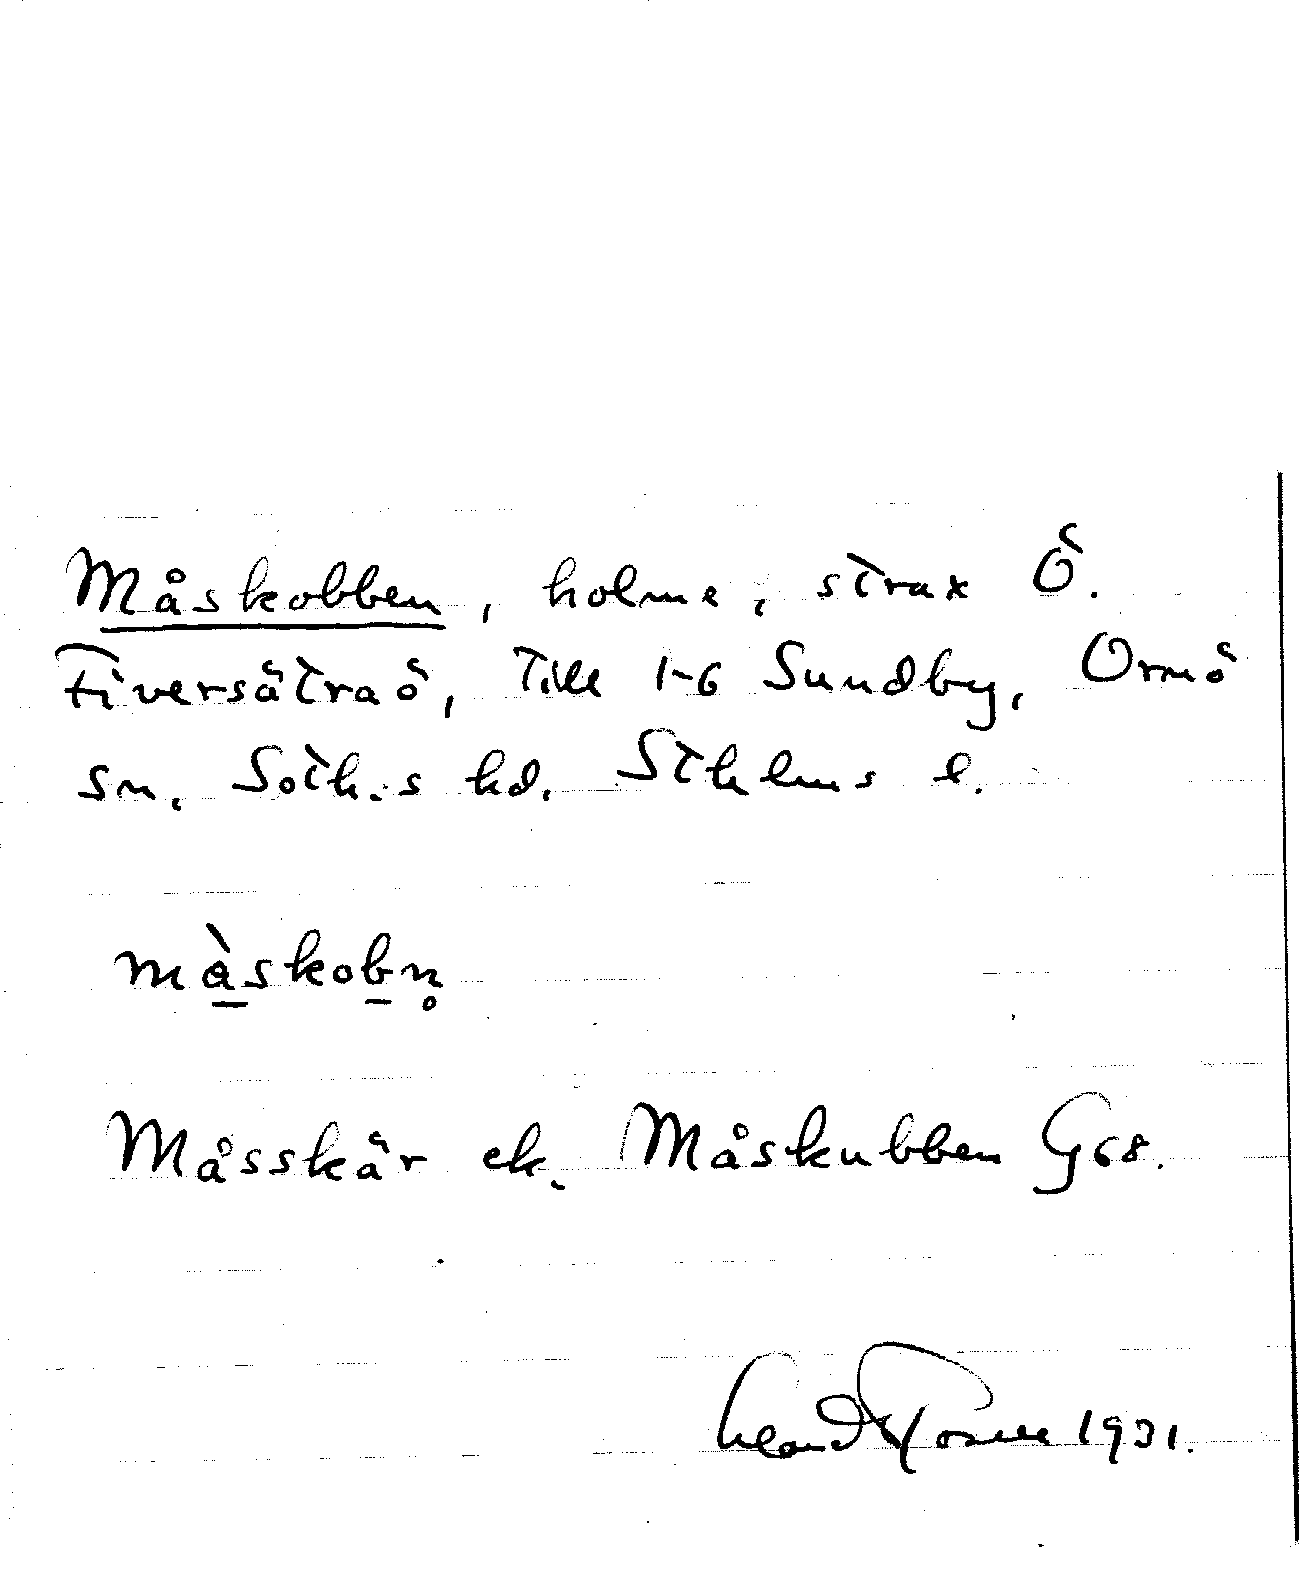 Måskobben, holme, strax Ö.
Fiversätraö, Till 1-6 Sundby, Ornö
sn, Soth.s hd. Sthlms l.
màskobn̥
Måsskär ek. Måskubben G68.
1931.